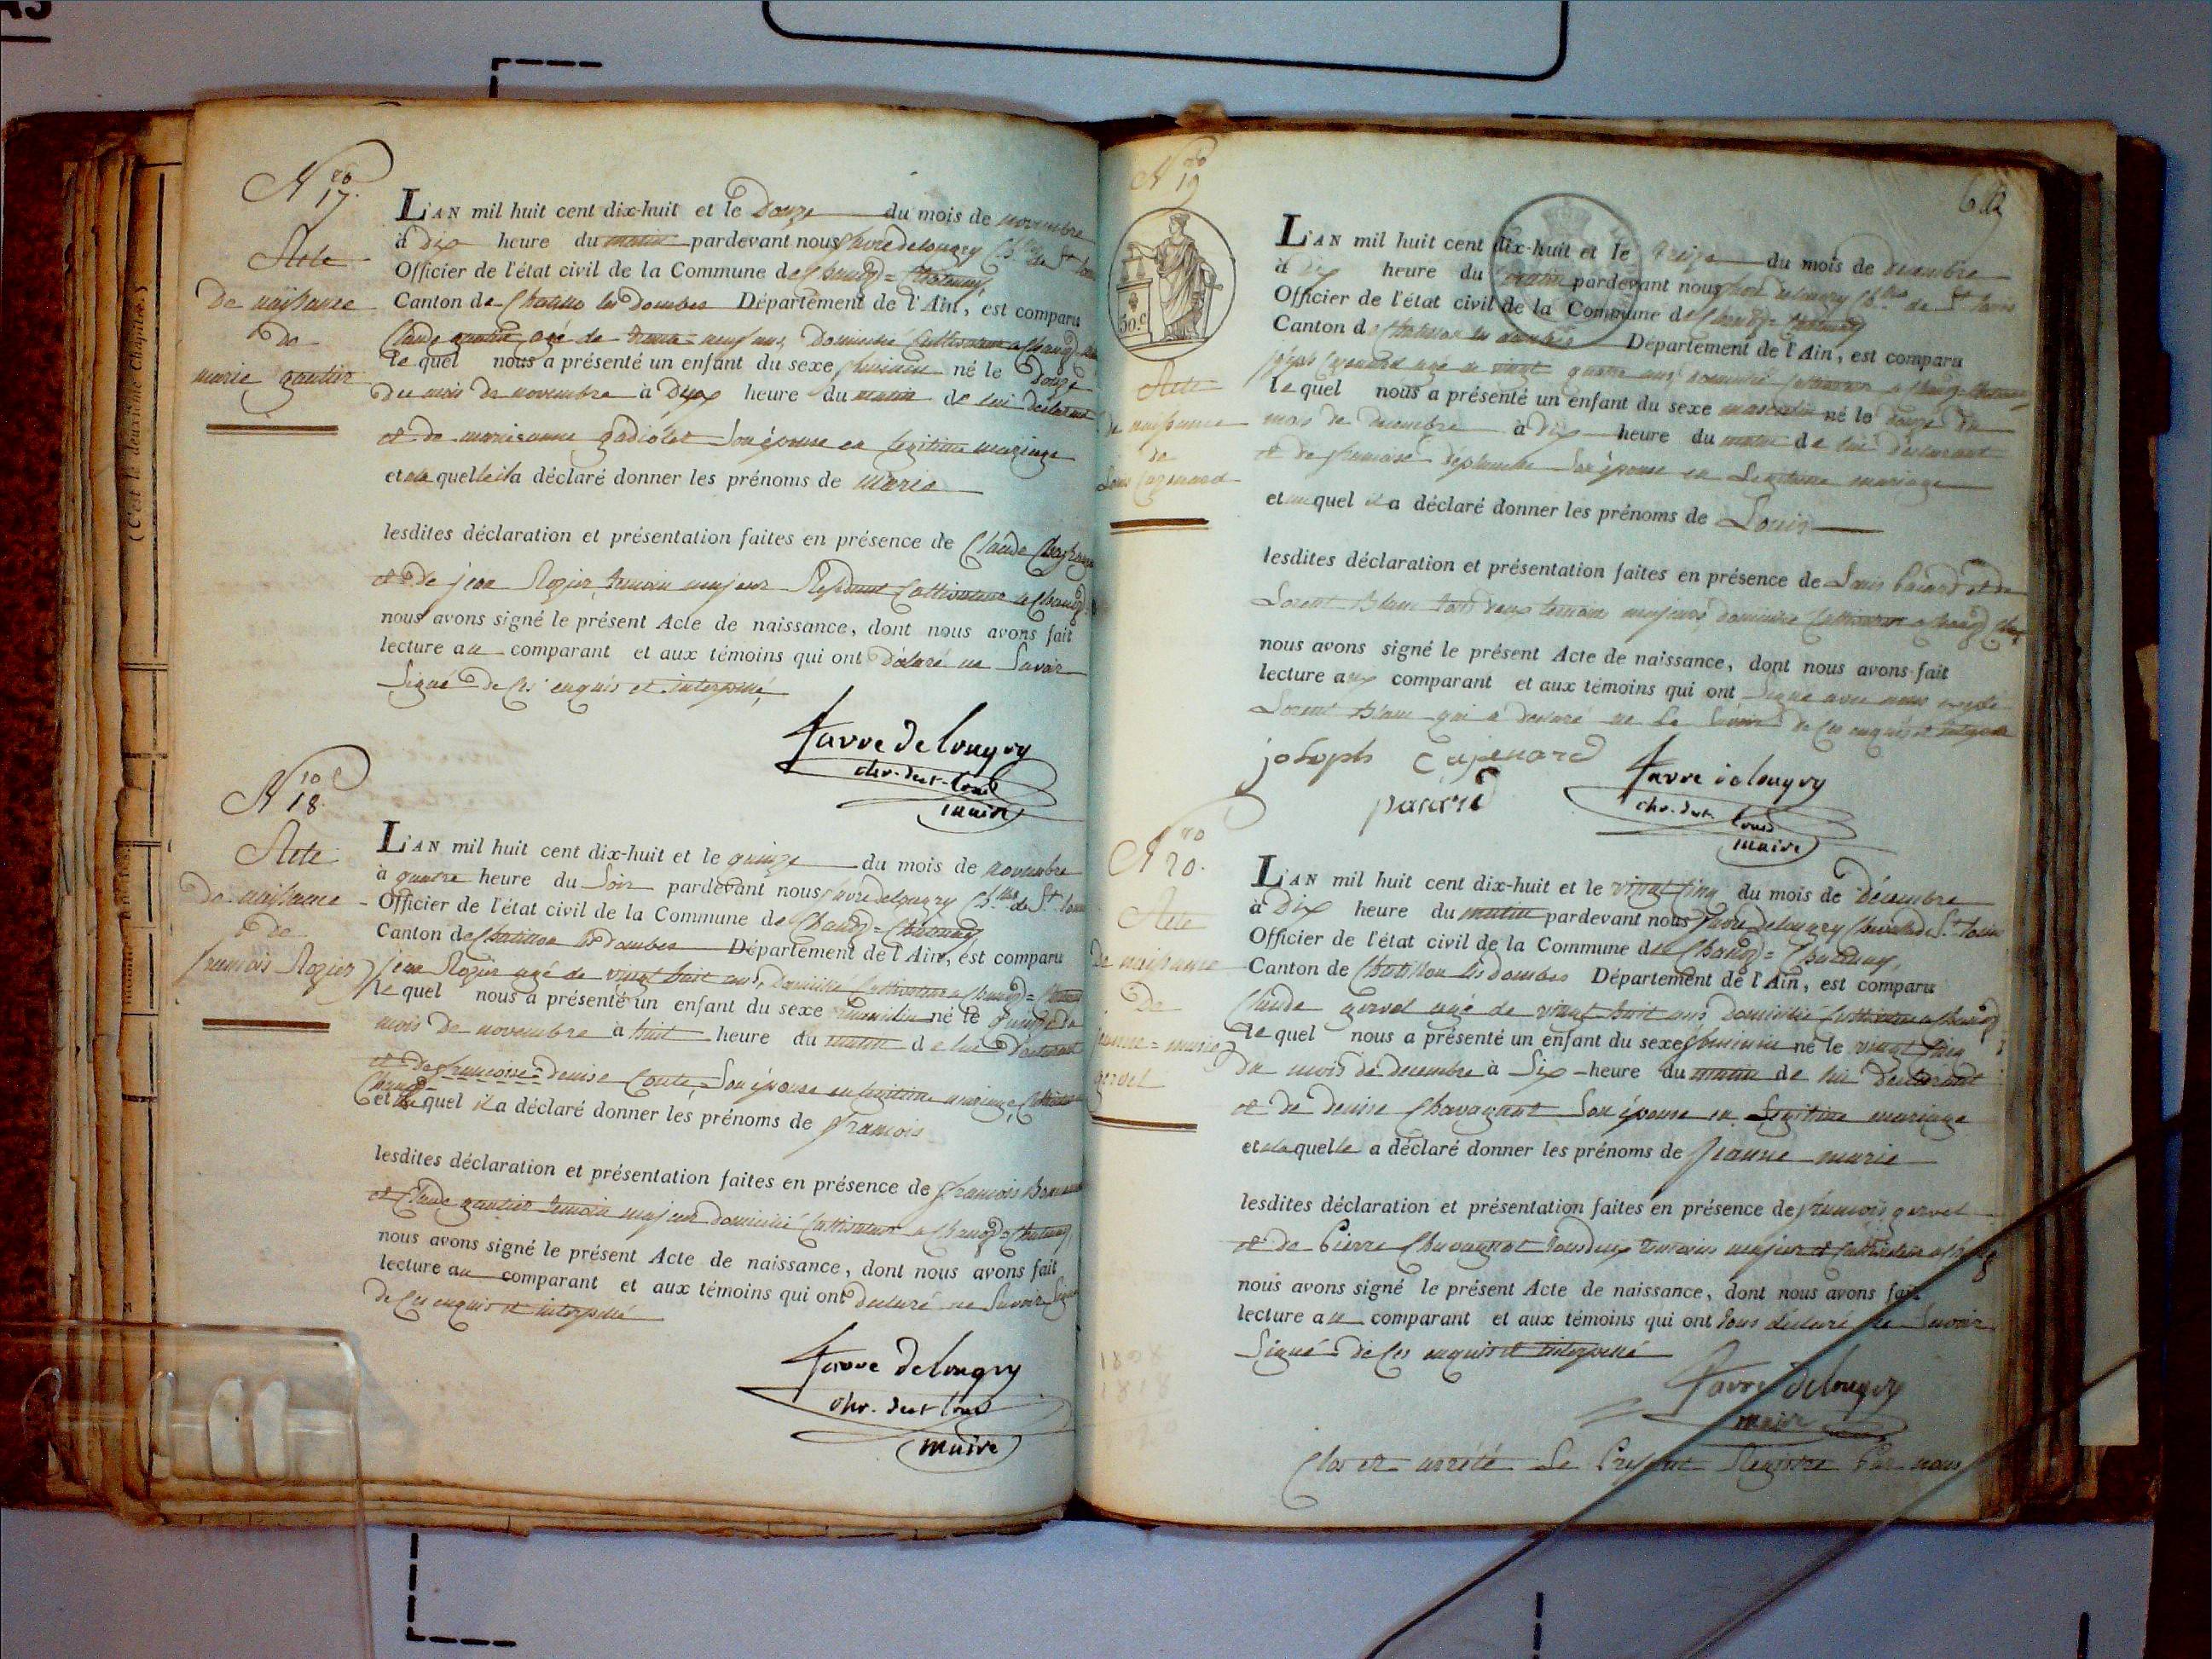 N.ro 17.
Acte
De naissance
De
marie gautier
L'AN mil huit cent dix-huit et le Douze du mois de novembre
à Dix heure du matin pardevant nous favre delongry Ch.er de St Louis
Officier de l'état civil de la Commune de Chanoz = Chatenay
Canton de Chatillon les Dombes Département de l'Ain, est comparu
Claude gautier agé de trente neuf ans, Domicilié Cultivateur a Chanoz
le quel nous a présenté un enfant du sexe feminin né le Douze
Du mois de novembre à Dix heure du matin de lui declarant
et de marieanne gadiolet Son épouse en legitime mariage
et a la quelle il a déclaré donner les prénoms de marie
lesdites déclaration et présentation faites en présence de Claude
et de jean Rozier temoin majeur Cultivateur a Chanoz
nous avons signé le présent Acte de naissance, dont nous avons fait
lecture au comparant et aux témoins qui ont Déclaré ne Savoir
Signé de Ces enquis et interpellé
favre Delongry
chr. de st. Louis
maire
N.ro 18.
Acte
De naissance
De
francois Rozier
L'AN mil huit cent dix-huit et le quinze du mois de novembre
à quatre heure du Soir pardevant nous favre delongry Ch.er de St. Louis
Officier de l'état civil de la Commune de Chanoz = Chatenay
Canton de Chatillon les Dombes Département de l'Ain, est comparu
jean Rozier agé de vingt huit ans, Domicilié Cultivateur a Chanoz =
le quel nous a présenté un enfant du sexe masculin né le quinze Du
mois de novembre à huit heure du matin de lui Declarant
et de francoise = denise Conte, Son épouse en legitime mariage
et au quel il a déclaré donner les prénoms de francois
lesdites déclaration et présentation faites en présence de francois
et Claude gautier temoin majeur domicilié Cultivateur a Chanoz = Chatenay
nous avons signé le présent Acte de naissance, dont nous avons fait
lecture au comparant et aux témoins qui ont Declaré ne Savoir Signé
de Ces enquis et interpellé
favre Delongry
chr. de st Louis
maire
N.ro 19
50.c
Acte
de naissance
de
Louis Cugenard
L'AN mil huit cent dix-huit et le treize du mois de decembre
à Dix heure du matin pardevant nous favre delongry Ch.er de St. Louis
Officier de l'état civil de la Commune de Chanoz = Chatenay
Canton de Chatillon les dombes Département de l'Ain, est comparu
joseph Cugenard agé de vingt quatre ans, domicilié Cultivateur a Chanoz = Chatenay
le quel nous a présenté un enfant du sexe masculin né le Douze Du
mois de Decembre à Dix heure du matin de lui declarant
et de francoise deplanche Son épouse en Legitime mariage
et au quel il a déclaré donner les prénoms de Louis
lesdites déclaration et présentation faites en présence de Louis et de
Lorent Blanc tous deux temoin majeurs domicilié Cultivateur a Chanoz
nous avons signé le présent Acte de naissance, dont nous avons fait
lecture aux comparant et aux témoins qui ont Signé avec nous
Lorent Blanc qui a declaré ne le Savoir de Ces enquis et interpellé
joseph Cugenard
favre delongry
chr. de st. Louis
maire
N.ro 20.
Acte
De naissance
De
jeanne = marie
gervet
L'AN mil huit cent dix-huit et le vingt Cinq du mois de Décembre
à Dix heure du matin pardevant nous favre Delongry Chevalier de St. Louis
Officier de l'état civil de la Commune de Chanoz = Chatenay,
Canton de Chatillon les dombes Département de l'Ain, est comparu
Claude gervet agé de vingt huit ans Domicilié Cultivateur a Chanoz
le quel nous a présenté un enfant du sexe feminin né le vingt Cinq
Du mois de decembre à Six heure du matin de lui Declarant
et de denise Chavagnat Son épouse en Legitime mariage
et a la quelle a déclaré donner les prénoms de jeanne marie
lesdites déclaration et présentation faites en présence de francois gervet
et de Pierre Chavagnat tous deux temoins majeur et Cultivateur a Chanoz
nous avons signé le présent Acte de naissance, dont nous avons fait
lecture au comparant et aux témoins qui ont tous declaré ne Savoir
Signé de Ces enquis et interpellé
favre Delongry
maire
Clos et arrété Le Present Registre Par nous